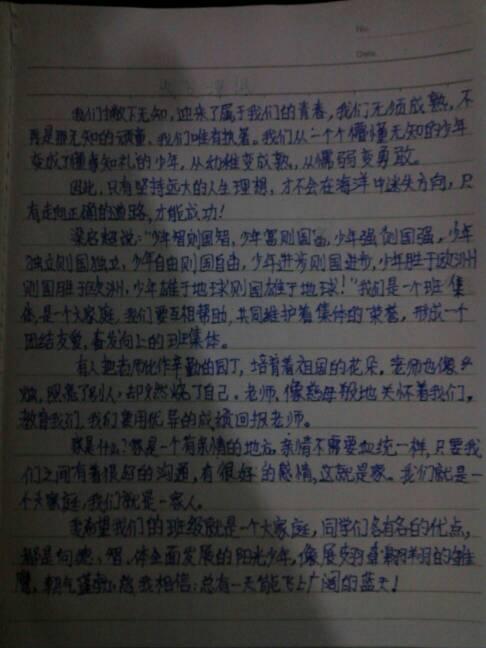 No.
Date.
我们撇下无知，迎来了属于我们的青春，我们无须成熟，不
再是那无知的顽童，我们唯有执著。我们从一个个懵懂无知的少年
变成了懂事知礼的少年，从幼稚变成熟，从懦弱变勇敢。
因此，只有坚持远大的人生理想，才不会在海洋中迷失方向，只
有走向正确的道路，才能成功！
梁启超说："少年智则国智，少年富则国富，少年强则国强，少年
独立则国独立，少年自由则国自由，少年进步则国进步，少年胜于欧洲
则国胜于欧洲，少年雄于地球则国雄于地球！"我们是一个班集
体，是一个大家庭，我们要互相帮助，共同维护着集体的荣誉，形成一个
团结友爱，奋发向上的班集体。
有人把老师比作辛勤的园丁，培育着祖国的花朵。老师也像
烛，照亮了别人，却燃烧了自己。老师，像慈母般地关怀着我们，
教育我们，我们要用优异的成绩回报老师。
家是什么？家是一个有亲情的地方。亲情不需要血统一样，只要我
们之间有着很好的沟通，有很好的感情，这就是家。我们就是一
个大家庭，我们就是一家人。
我希望我们的班级就是一个大家庭，同学们各有各的优点，
都是向德、智、体全面发展的阳光少年，像展翅翱翔的雏
鹰，朝气蓬勃，我相信：总有一天能飞上广阔的蓝天！